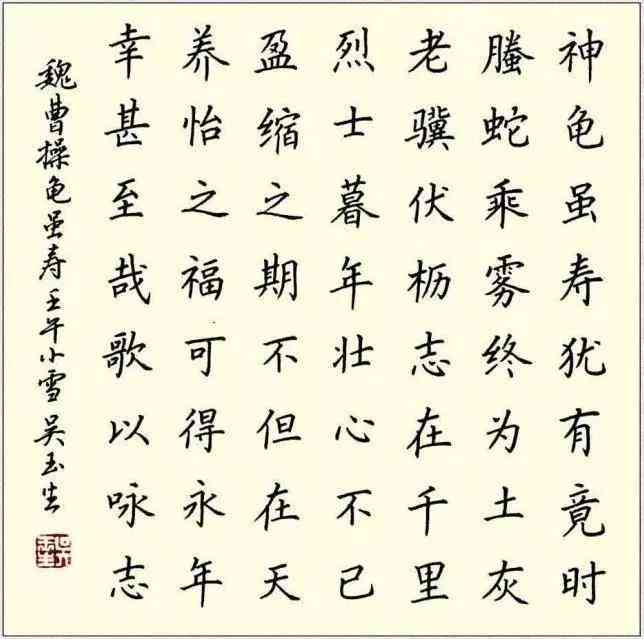 神龟虽寿犹有竟时
螣蛇乘雾终为土灰
老骥伏枥志在千里
烈士暮年壮心不已
盈缩之期不但在天
养怡之福可得永年
幸甚至哉歌以咏志
魏曹操龟虽寿壬午小雪吴玉生